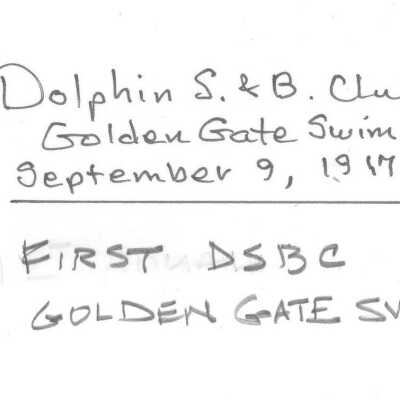 Dolphin S. & B. Clu
Golden Gate Swim
September 9, 1917
FIRST DSBC
GOLDEN GATE SW